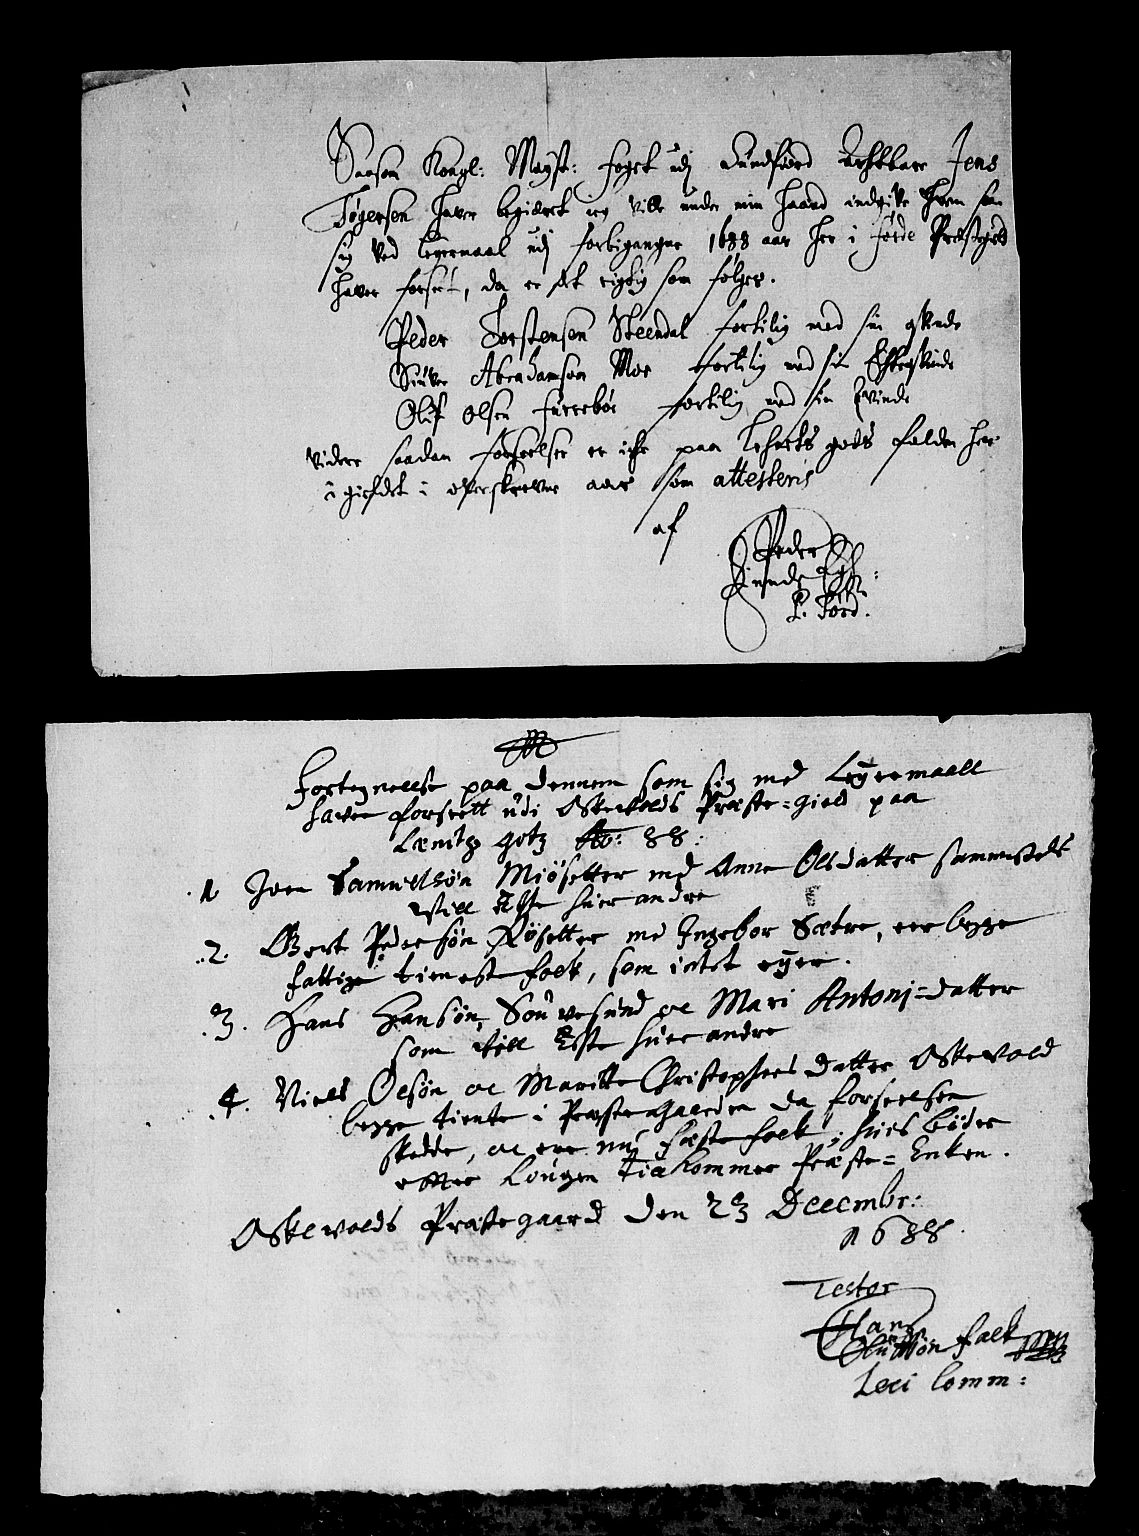 Saasom Kongl: Mayst: fogst udj Sundfiord Achtbare Jens
Tøgersen haver begieret ieg ville under min haand indgive hvem som
sig ved Legermaal udj forbigangne 1688 aar her i Førde Præstegield
haver forseet, da er det rigtig som følger.
Peder Torstensen Steendal fortilig med sin qvinde
Siuver Abradamsen Moe fortilig med sin Echteqvinde
Olif Olsen Furrebøe fortilig med sin qvinde
videre saadan forseelser er iche paa Lehnets gods falden her
i gieldet i ofverskrevne aar som attesteris
af
Peder
P. Førd.
Fortegnelse paa dennem som sig med Leyermaall
haver forseett udi Oskevolds Præste=gield paa
Lænitz gotz Ao: 88:
1 Iven Samuelsøn Miøsetter med Anne Olsdatter sammesteds
vill Egte huer andre
2. Gert Pedersøn Røsetter med Ingebor Sætre, eer begge
fattige tieneste folck, som intet eyer.
3. Hans Hansøn, Souvesund oc Mari Antonj=datter
som vill Egte huer andre
4. Niels Olsøn oc Maritte Christophers datter Oskevold
begge tiente i Præstegaarden da forseelsen
skedde, oc ere nu fæste folck, huis bøder
effter Lougen tilkommer Præste=Enken.
Oskevolds Præstegaard den 23 Decembr:
1688.
Testor
Hans
Falck
Loci Comm: